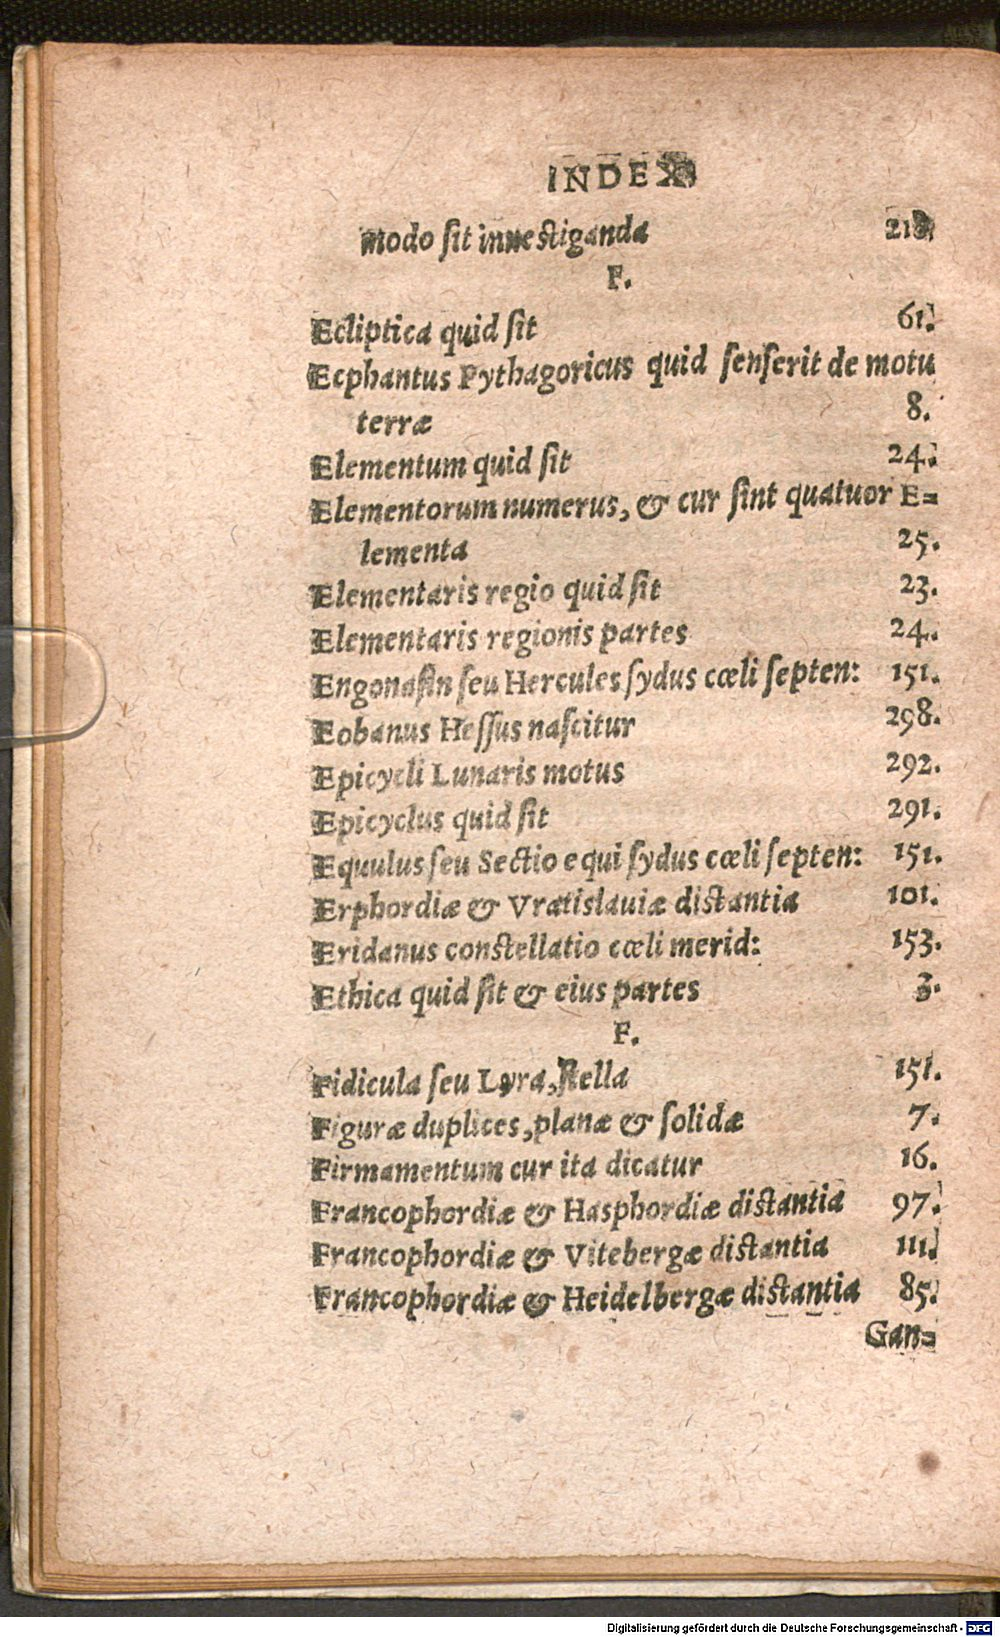 INDEX
modo ſit inueſtiganda
F.
Ecliptica quid ſit 61.
Ecphantus Pythagoricus quid ſenſerit de motu
terræ 8.
Elementum quid ſit 24.
Elementorum numerus, & cur ſint quatuor E=
lementa 25.
Elementaris regio quid ſit 23.
Elementaris regionis partes 24.
Engonaſin ſeu Hercules ſydus cœli ſepten: 151.
Eobanus Heſſus naſcitur 298.
Epicycli Lunaris motus 292.
Epicyclus quid ſit 291.
Equulus ſeu Sectio equi ſydus cœli ſepten: 151.
Erphordiæ & Vratislauiæ distantia 101.
Eridanus constellatio cœli merid: 153.
Ethica quid ſit & eius partes 3.
F.
Fidicula ſeu Lyra, ſtella 151.
Figuræ duplices, planæ & ſolidæ 7.
Firmamentum cur ita dicatur 16.
Francophordiæ & Hasphordiæ distantia 97.
Francophordiæ & Vitebergæ distantia 111.
Francophordiæ & Heidelbergæ distantia 85.
Gan=
Digitalisierung gefördert durch die Deutsche Forschungsgemeinschaft - DFG